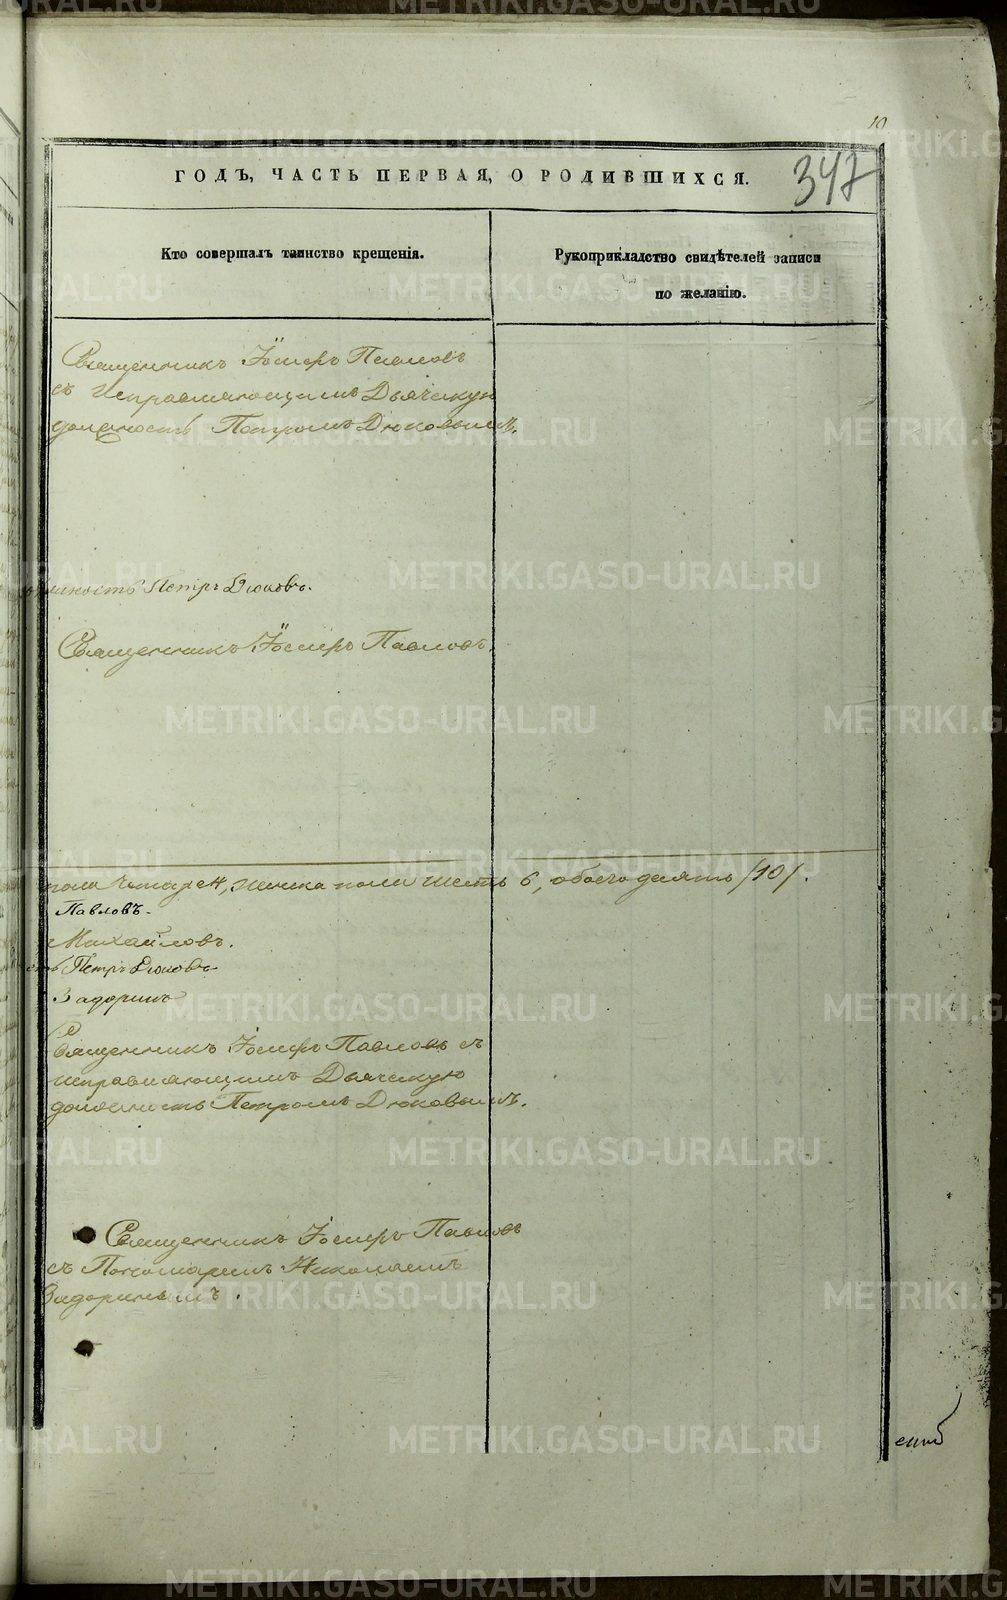 10
347
ГОДЪ, ЧАСТЬ ПЕРВАЯ, О РОДИВШИХСЯ.
Кто совершалъ таинство крещенія.
Рукоприкладство свидѣтелей записи
по желанію.
Священникъ Іосифъ Павловъ
съ исправляющимъ Дьячекую
должность Петромъ Дюковымъ.
должность Петръ Дюковъ.
Священникъ Іосифъ Павловъ.
пола четыре 4, женска пола шесть 6, обоего десять /10/.
Павловъ.
Михайловъ.
Петръ Дюковъ
Задоринъ
Священникъ Іосифъ Павловъ съ
исправляющимъ Дьячекую
должность Петромъ Дюковымъ.
Священникъ Іосифъ Павловъ
съ Пономаремъ Николаемъ
Задоринымъ.
METRIKI.GASO-URAL.RU